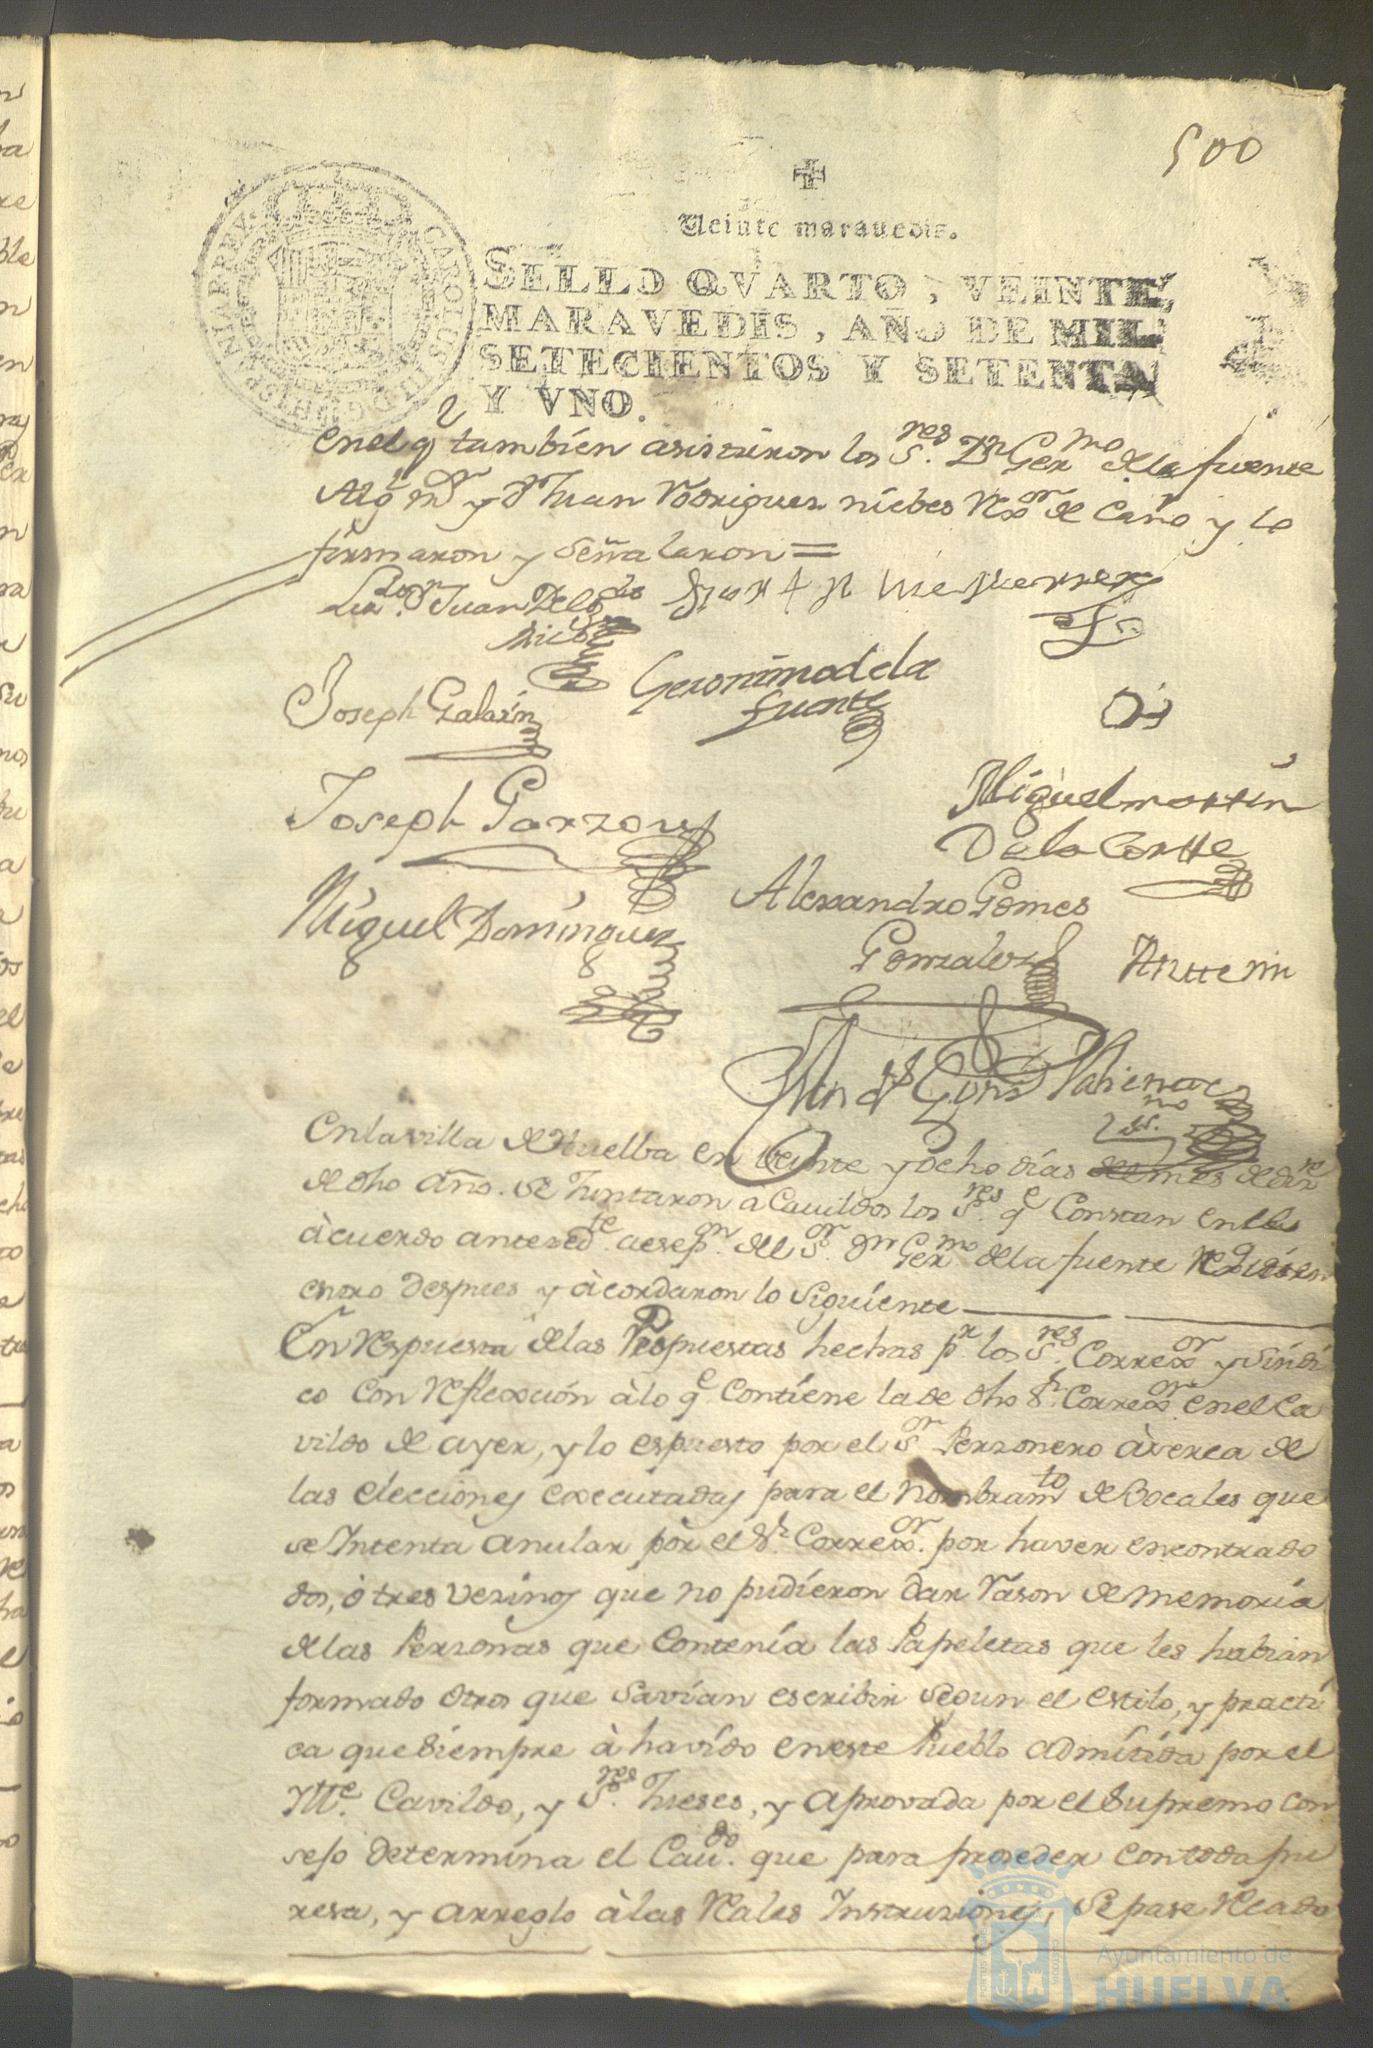 500
Veinte maravedis.
SELLO QVARTO, VEINTE
MARAVEDIS, AÑO DE MIL
SETECIENTOS Y SETENTA
Y VNO.
CAROLUS III D.G. HISPANIAR REX
en el q̃ tambien asistieron los S.res Dn Ger.mo de la fuente
Alg.l m.or y Dn Juan Rodriguez niebes Rex.or de Caño y lo
firmaron y señalaron =
Liz.do Dn Juan Delg.do
Joseph Galasin
Geronimo de la
fuente
Joseph Garzon
Miguel martin
De la Cortte
Miguel Dominguez
Alexandro Gomes
Gonzalez
Antte mi
En la villa de Huelba en veinte y ocho dias de mes de diz.re
de dho año. se Juntaron a Cauildo los S.res q.e Constan en el
àcuerdo anteced.te a esep.on del S.or Dn Ger.mo de la fuente
entro despues y àcordaron lo siguiente
En respuesta de las Respuestas hechas p.r los S.res Correx.or y sindi
co con reflexcion à lo q.e Contiene la de dho S.r Correx.or en el Ca
vildo de ayer, y lo espuesto por el S.or Perzonero àzerca de
las elecciones executadas para el nombram.to de Bocales que
se Intenta anular por el S.r Correx.or por haver encontrado
dos, ò tres vezinos que no pudieron dar rason de memoria
de las Perzonas que contenia las Papeletas que les habian
formado otros que savian escribir segun el estilo, y practi
ca que siempre à havido en este Pueblo admitida por el
Ille. Cavildo, y S.res Jueses, y aprovada por el Supremo con
sejo determina el Cau.do que para proseder con toda pu
resa, y arreglo à las Reales Instruziones, se pase Recado
Ayuntamiento de
HUELVA